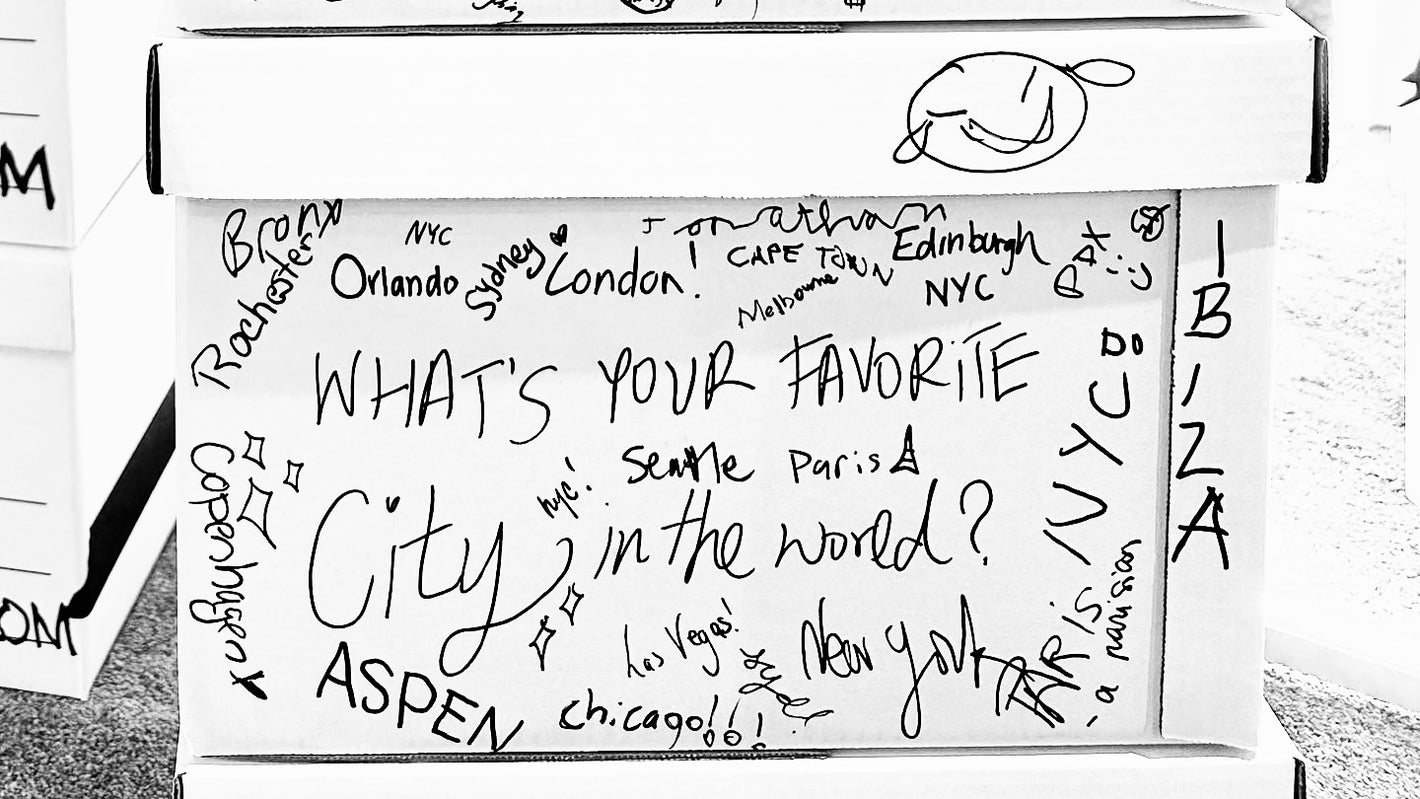 M
OM
Bronx
Rochester
NYC
Orlando
Sydney
London!
Jonathan
CAPE TOWN
Melbourne
Edinburgh
NYC
IBIZA
WHAT'S YOUR FAVORITE
Seattle Paris
City in the world?
nyc!
NYC
Copenhagen
Las Vegas!
New York
PARIS
- a parisian
ASPEN
chicago!!!